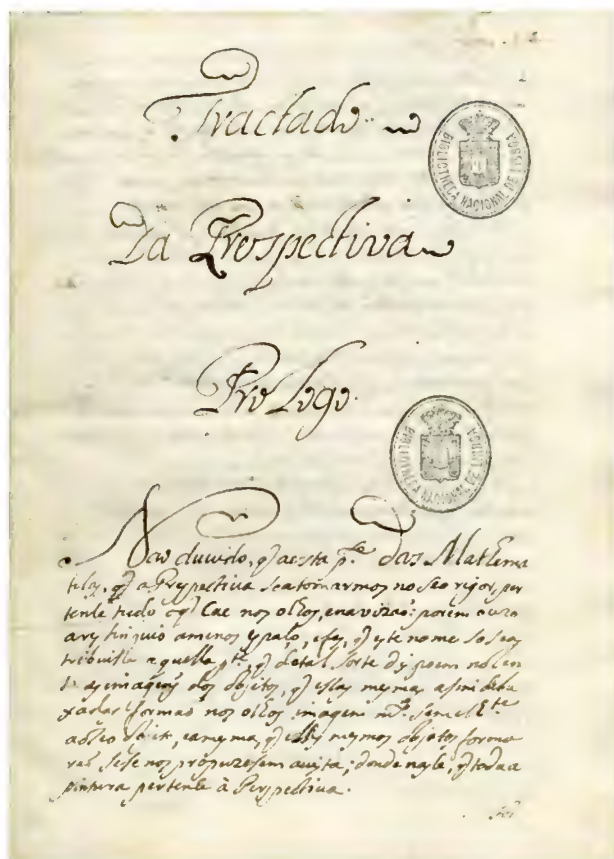 Tractado
Da Prospectiva
BIBLIOTHECA NACIONAL DE LISBOA
Prologo.
BIBLIOTHECA NACIONAL DE LISBOA
Naõ duvido, q̃ a esta p.te das Mathema
ticas, q̃ a Perspectiva se a tomarmos no seo rigor, per
tense tudo o q̃ Cae nos olhos, e na vizaõ: porem o uzo
a restinguio a menos espaço, e fes, q̃ este nome so se a
tribuisse aquella p.te, q̃ de tal sorte dispoem
as imagens dos objetos, q̃ estas mesmas assim debu
xadas formaõ nos olhos imagem m.to semelh.te
ao seo objeto, e a mesma, q̃ esses mesmos objetos forma
raõ se se nos propuzessem a vista; donde nasce, q̃ toda a
pintura pertense à Perspectiva.